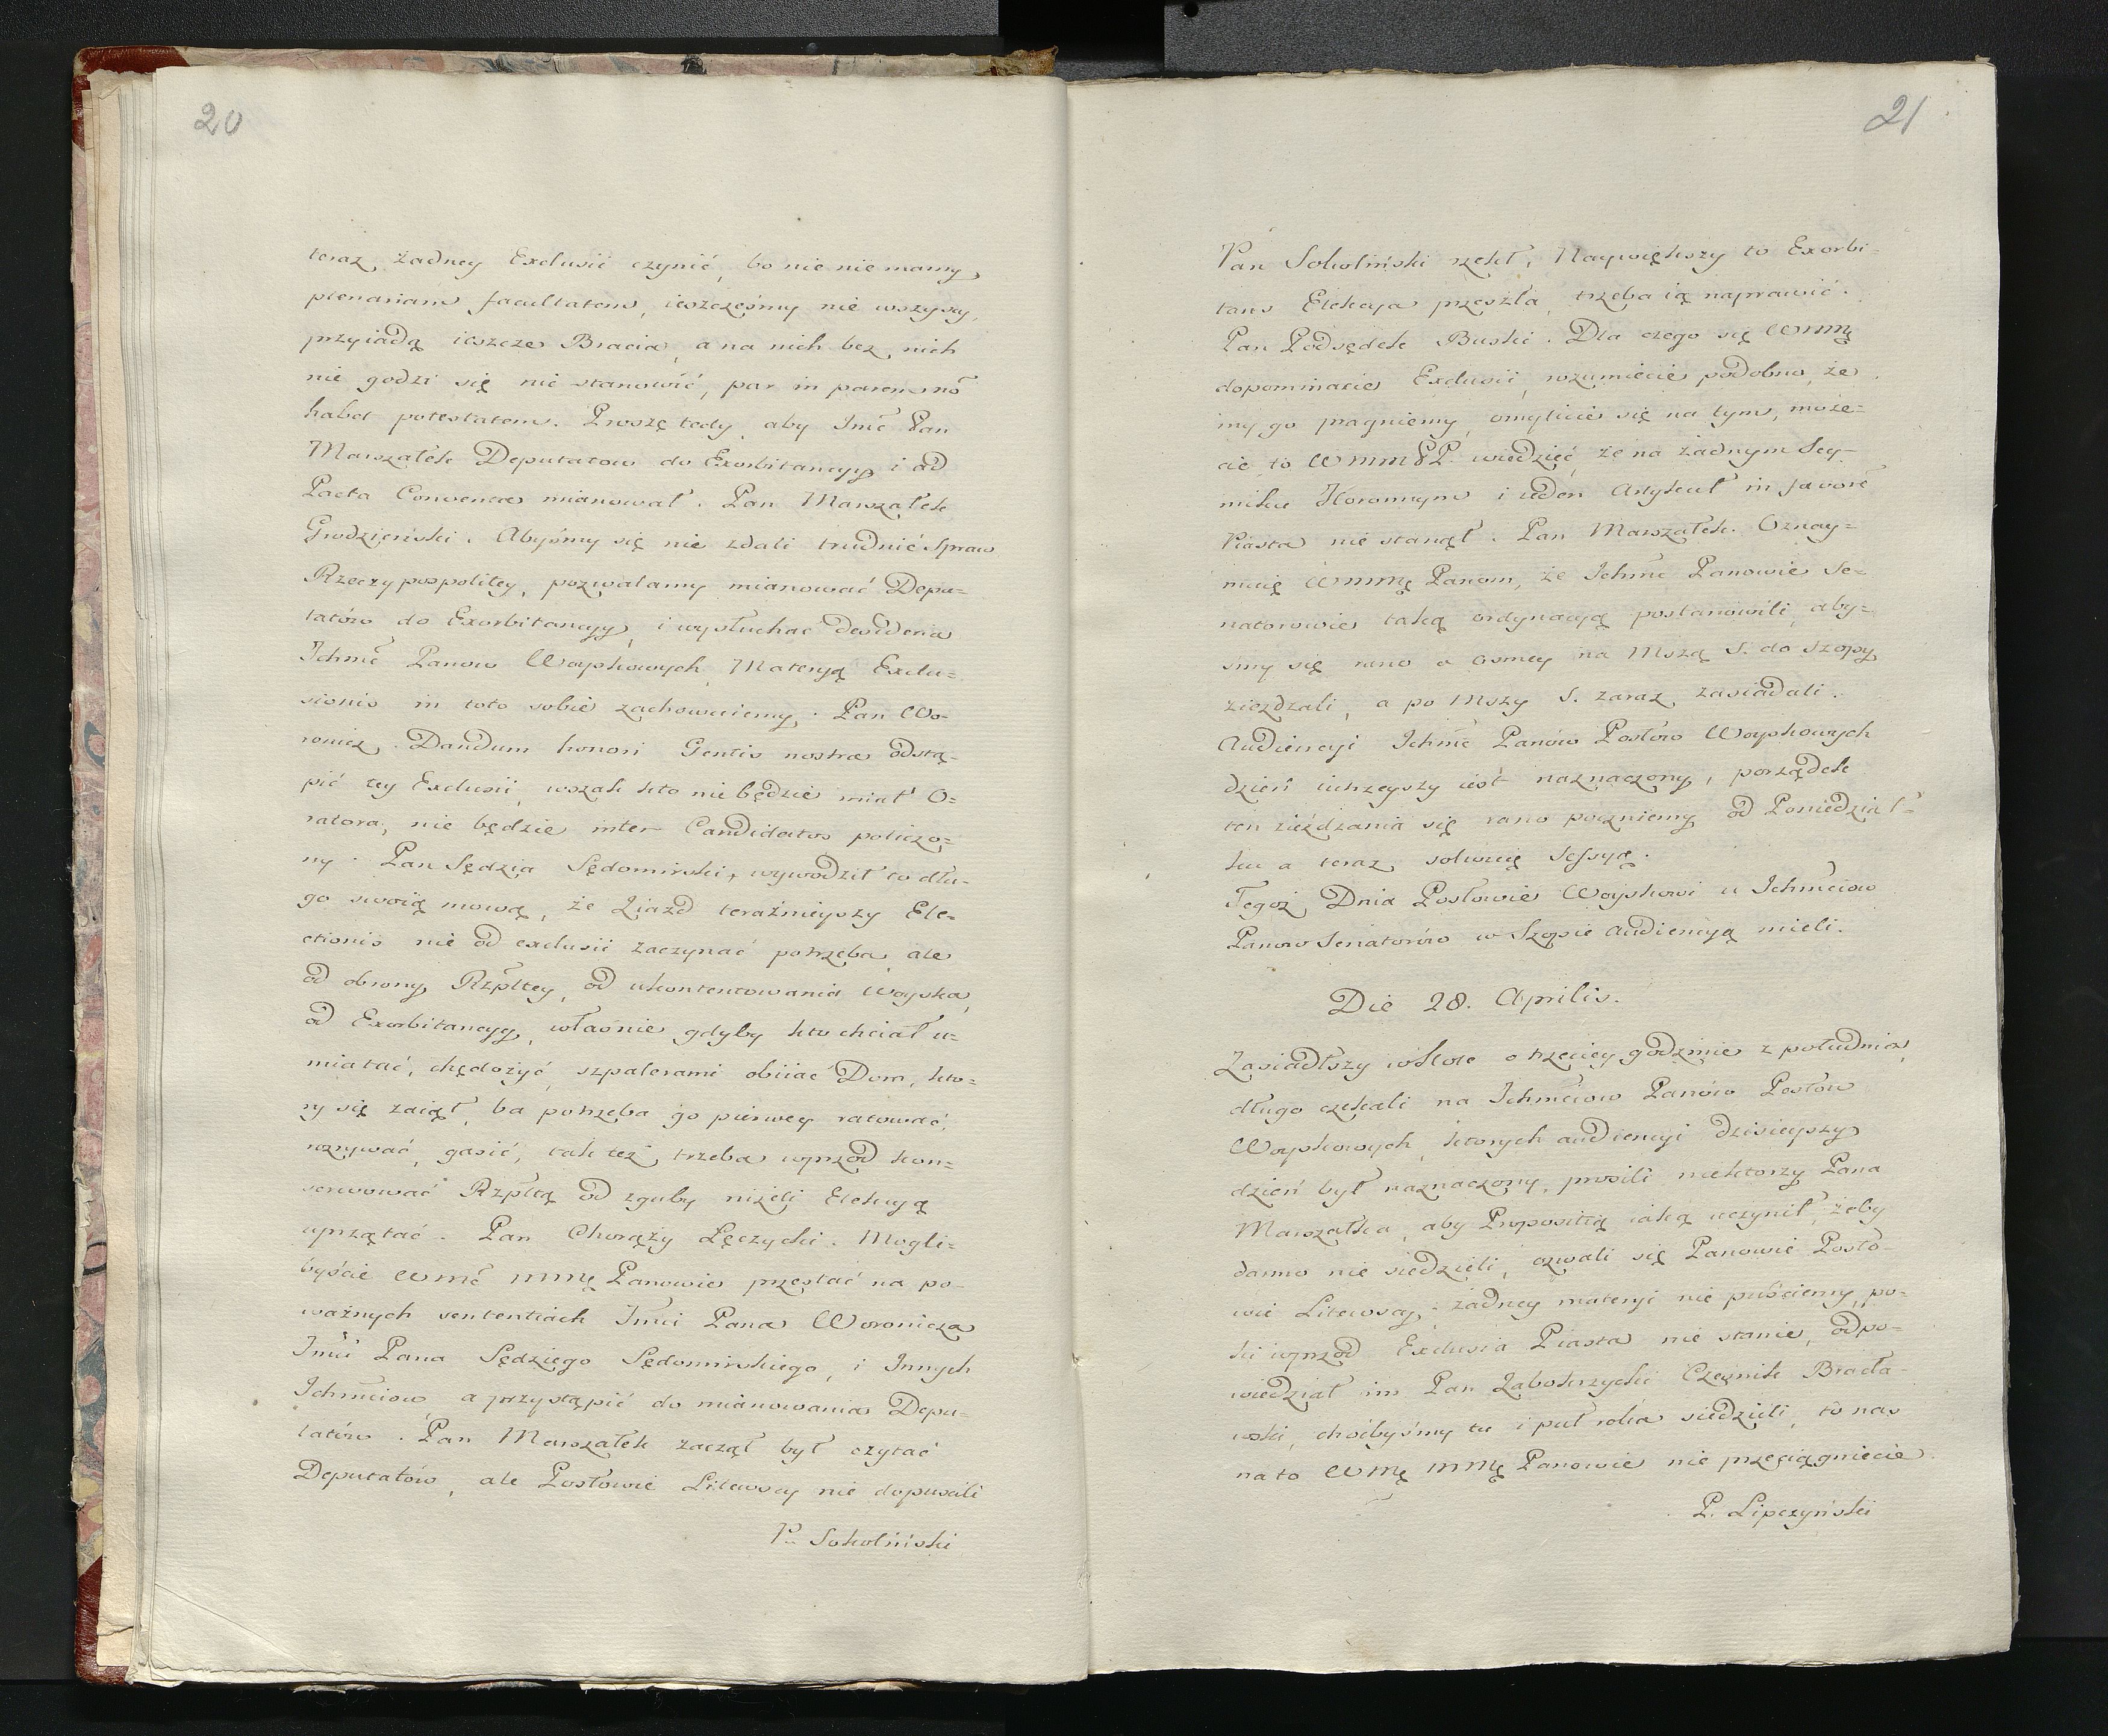 20
teraz, żadney Exclusii czynić, bo nie nie mamy
plenariam facultatem, ieszcześmy nie wszyscy,
przyiadą ieszcze Bracia, a na nich bez nich
nie godzi się nic stanowić, par in parem nõ
habet potestatem. Proszę tedy, aby Jmć Pan
Marszałek Deputatow do Exorbitancyy i ad
Pacta Conventa mianował. Pan Marszałek
Grodzieński. Abyśmy się nie zdali trudnić Spraw
Rzeczypospolitey, pozwalamy mianować Depu=
tatów do Exorbitancyy, i wysłuchac desideria
Ichmć Panow Woyskowych, Materyą Exclu=
sionis in toto sobie zachowuiemy. Pan Wo=
ronicz. Dandum honori Gentis nostræ odstą=
pić tey Exclusii, wszak kto nie będzie miał O=
ratora, nie będzie inter Candidatos policzo=
ny. Pan Sędzia Sędomirski, wywodził to dłu=
go swoią mową, że Ziazd teraźnieyszy Ele=
ctionis nie od exclusii zaczynać potrzeba, ale
od obrony Rzpltey, od ukontentowania Woyska,
od Exorbitancyy, właśnie gdyby kto chciał u=
miatać, chędożyć, szpalerami obiiać Dom, kto=
ry się zaiął, ba potrzeba go pierwey ratować,
rozrywać, gasić, tak też trzeba wprzod kon=
serwować Rzpltą od zguby niżeli Elekcyą
uprzątać. Pan Chorąży Łęczycki. Mogli=
byście Wmć mmę Panowie przestać na po=
ważnych sententiach Jmci Pana Woronicza
Jmci Pana Sędziego Sędomirskiego, i Innych
Ichmciow, a przystąpić do mianowania Depu=
tatów. Pan Marszałek zaczął był czytać
Deputatów, ale Posłowie Litewscy nie dopuscili
P. Sokoliński
21
Pan Sokoliński rzekł. Naywiększy to Exorbi=
tans Elekcya przeszła, trzeba ią naprawić.
Pan Podsędek Buski. Dla czego się Wmmę
dopominacie Exclusii, rozumiecie podobno, że
my go pragniemy, omylicie się na tym, może=
cie to WmmPP. wiedzieć, że na żadnym Sey=
miku Koronnym i ieden Artykuł in favorē
Piasta nie stanął. Pan Marszałek. Oznay=
muię Wmmę Panom, że Ichmć Panowie Se=
natorowie taką ordynacyą postanowili, aby=
smy się rano o osmey na Mszą S. do Szopy
ziezdzali, a po Mszy S. zaraz zasiadali.
Audiencyi Ichmć Panów Posłow Woyskowych
dzień iutrzeyszy iest naznaczony, porządek
ten zieżdzania się rano poczniemy od Poniedział=
ku a teraz solwuię Sessyą.
Tegoż Dnia Posłowie Woyskowi u Ichmciow
Panow Senatorów w Szopie Audiencyą mieli.
Die 28. Aprilis.
Zasiadłszy w Kole o trzeciey godzinie z południa,
długo czekali na Ichmciow Panów Posłow
Woyskowych, ktorych audiencyi dzisieyszy
dzień był naznaczony, prosili niektorzy Pana
Marszałka, aby Propositią iaką uczynił, żeby
darmo nie siedzieli, ozwali się Panowie Posło=
wie Litewscy, żadney materyi nie puściemy, po=
ki wprzod Exclusia Piasta nie stanie, odpo=
wiedział im Pan Zabokrzycki Cześnik Bracła=
wski, choćbyśmy tu i puł roka siedzieli, to nas
na to Wmę mmę Panowie nie przeciągniecie
P. Lipczyński